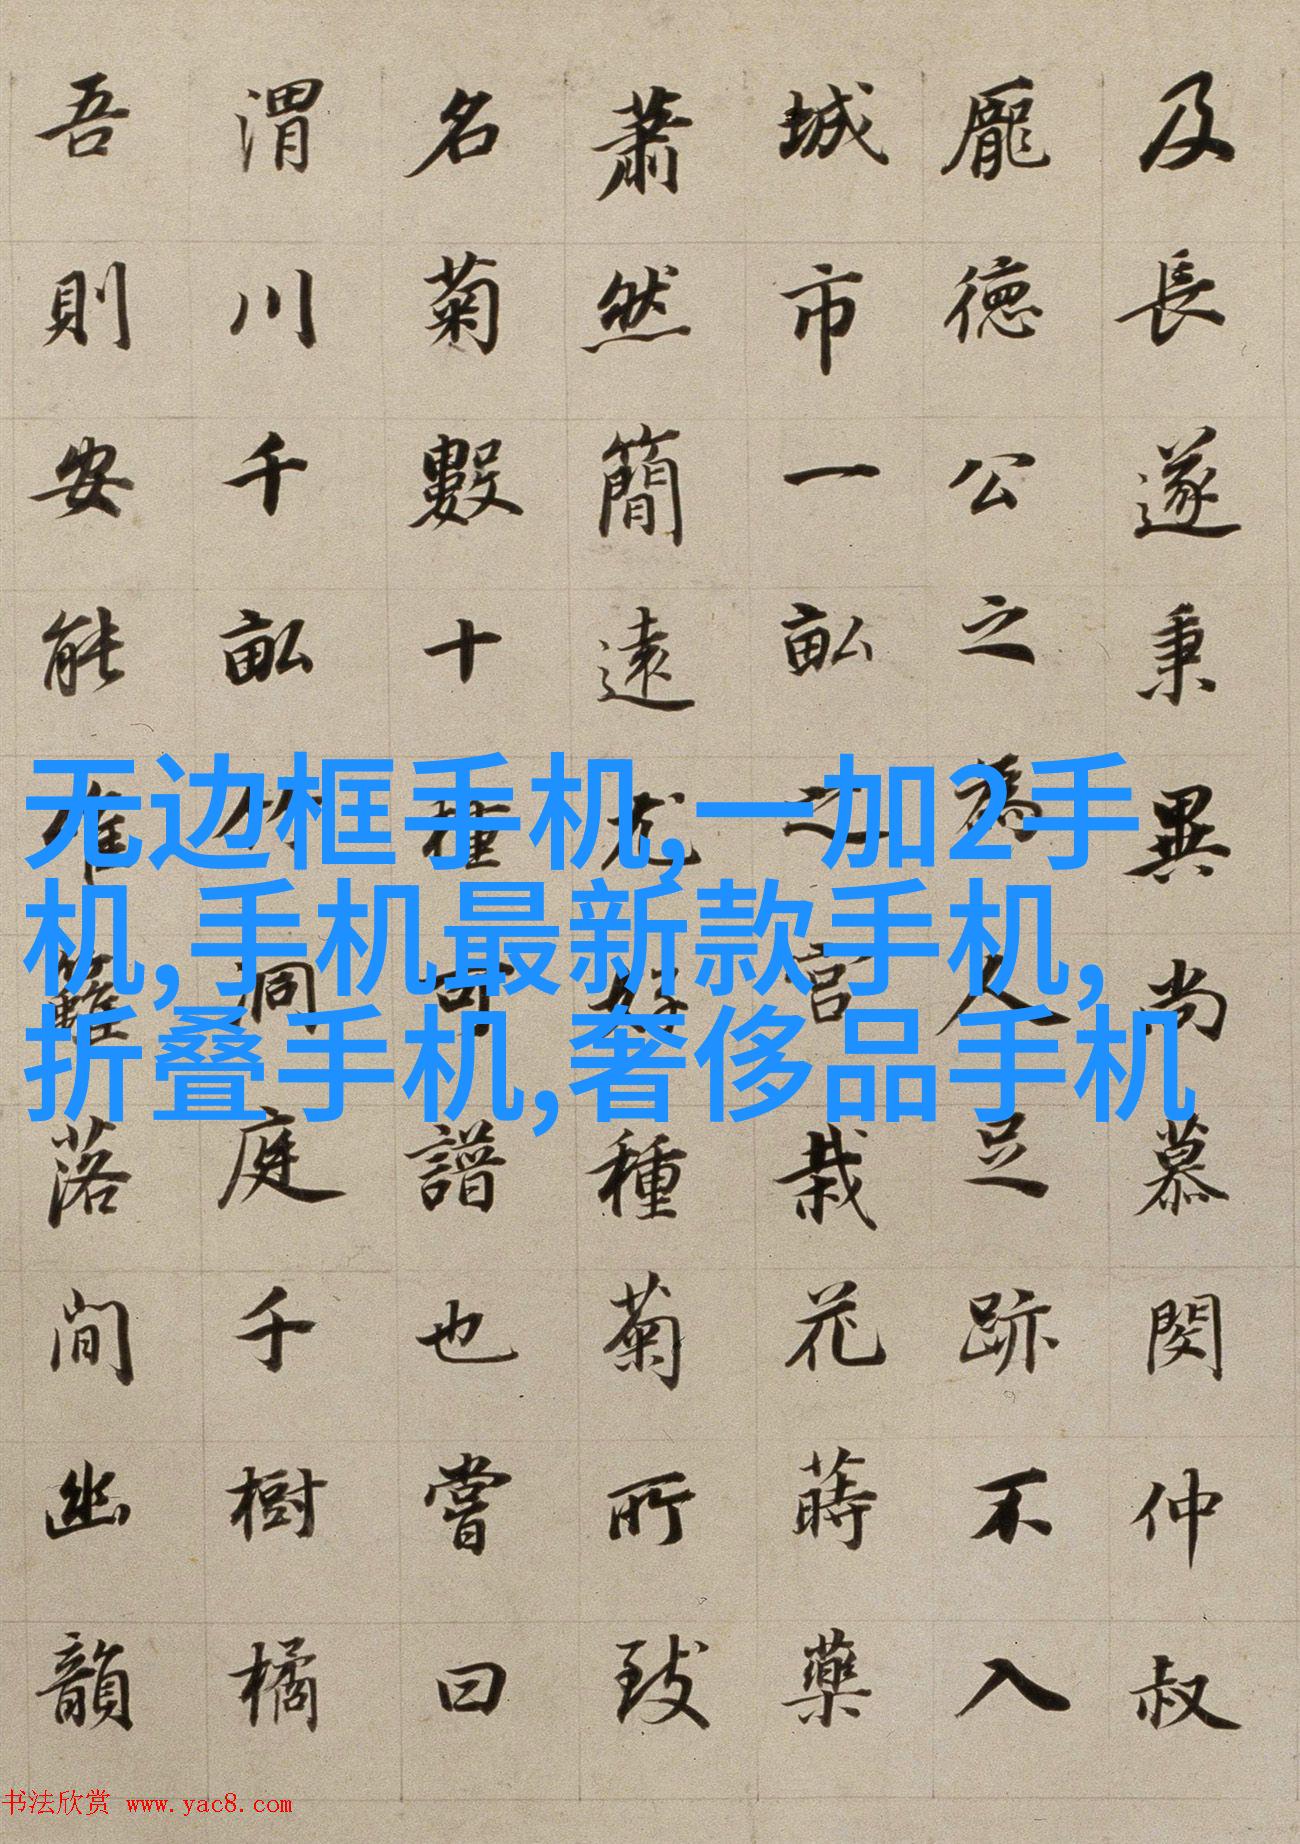 及長遂秉異尚慕閔仲叔
龐德公之為人足跡不入
城市一畝之宮栽花蒔藥
蕭然簡遠尤好種菊所致
名菊數十種可譜也嘗曰
渭川千畝竹洞庭千樹橘
吾則安能惟籬落間幽韻
无边框手机,一加2手
机,手机最新款手机,
折叠手机,奢侈品手机
书法欣赏 www.yac8.com